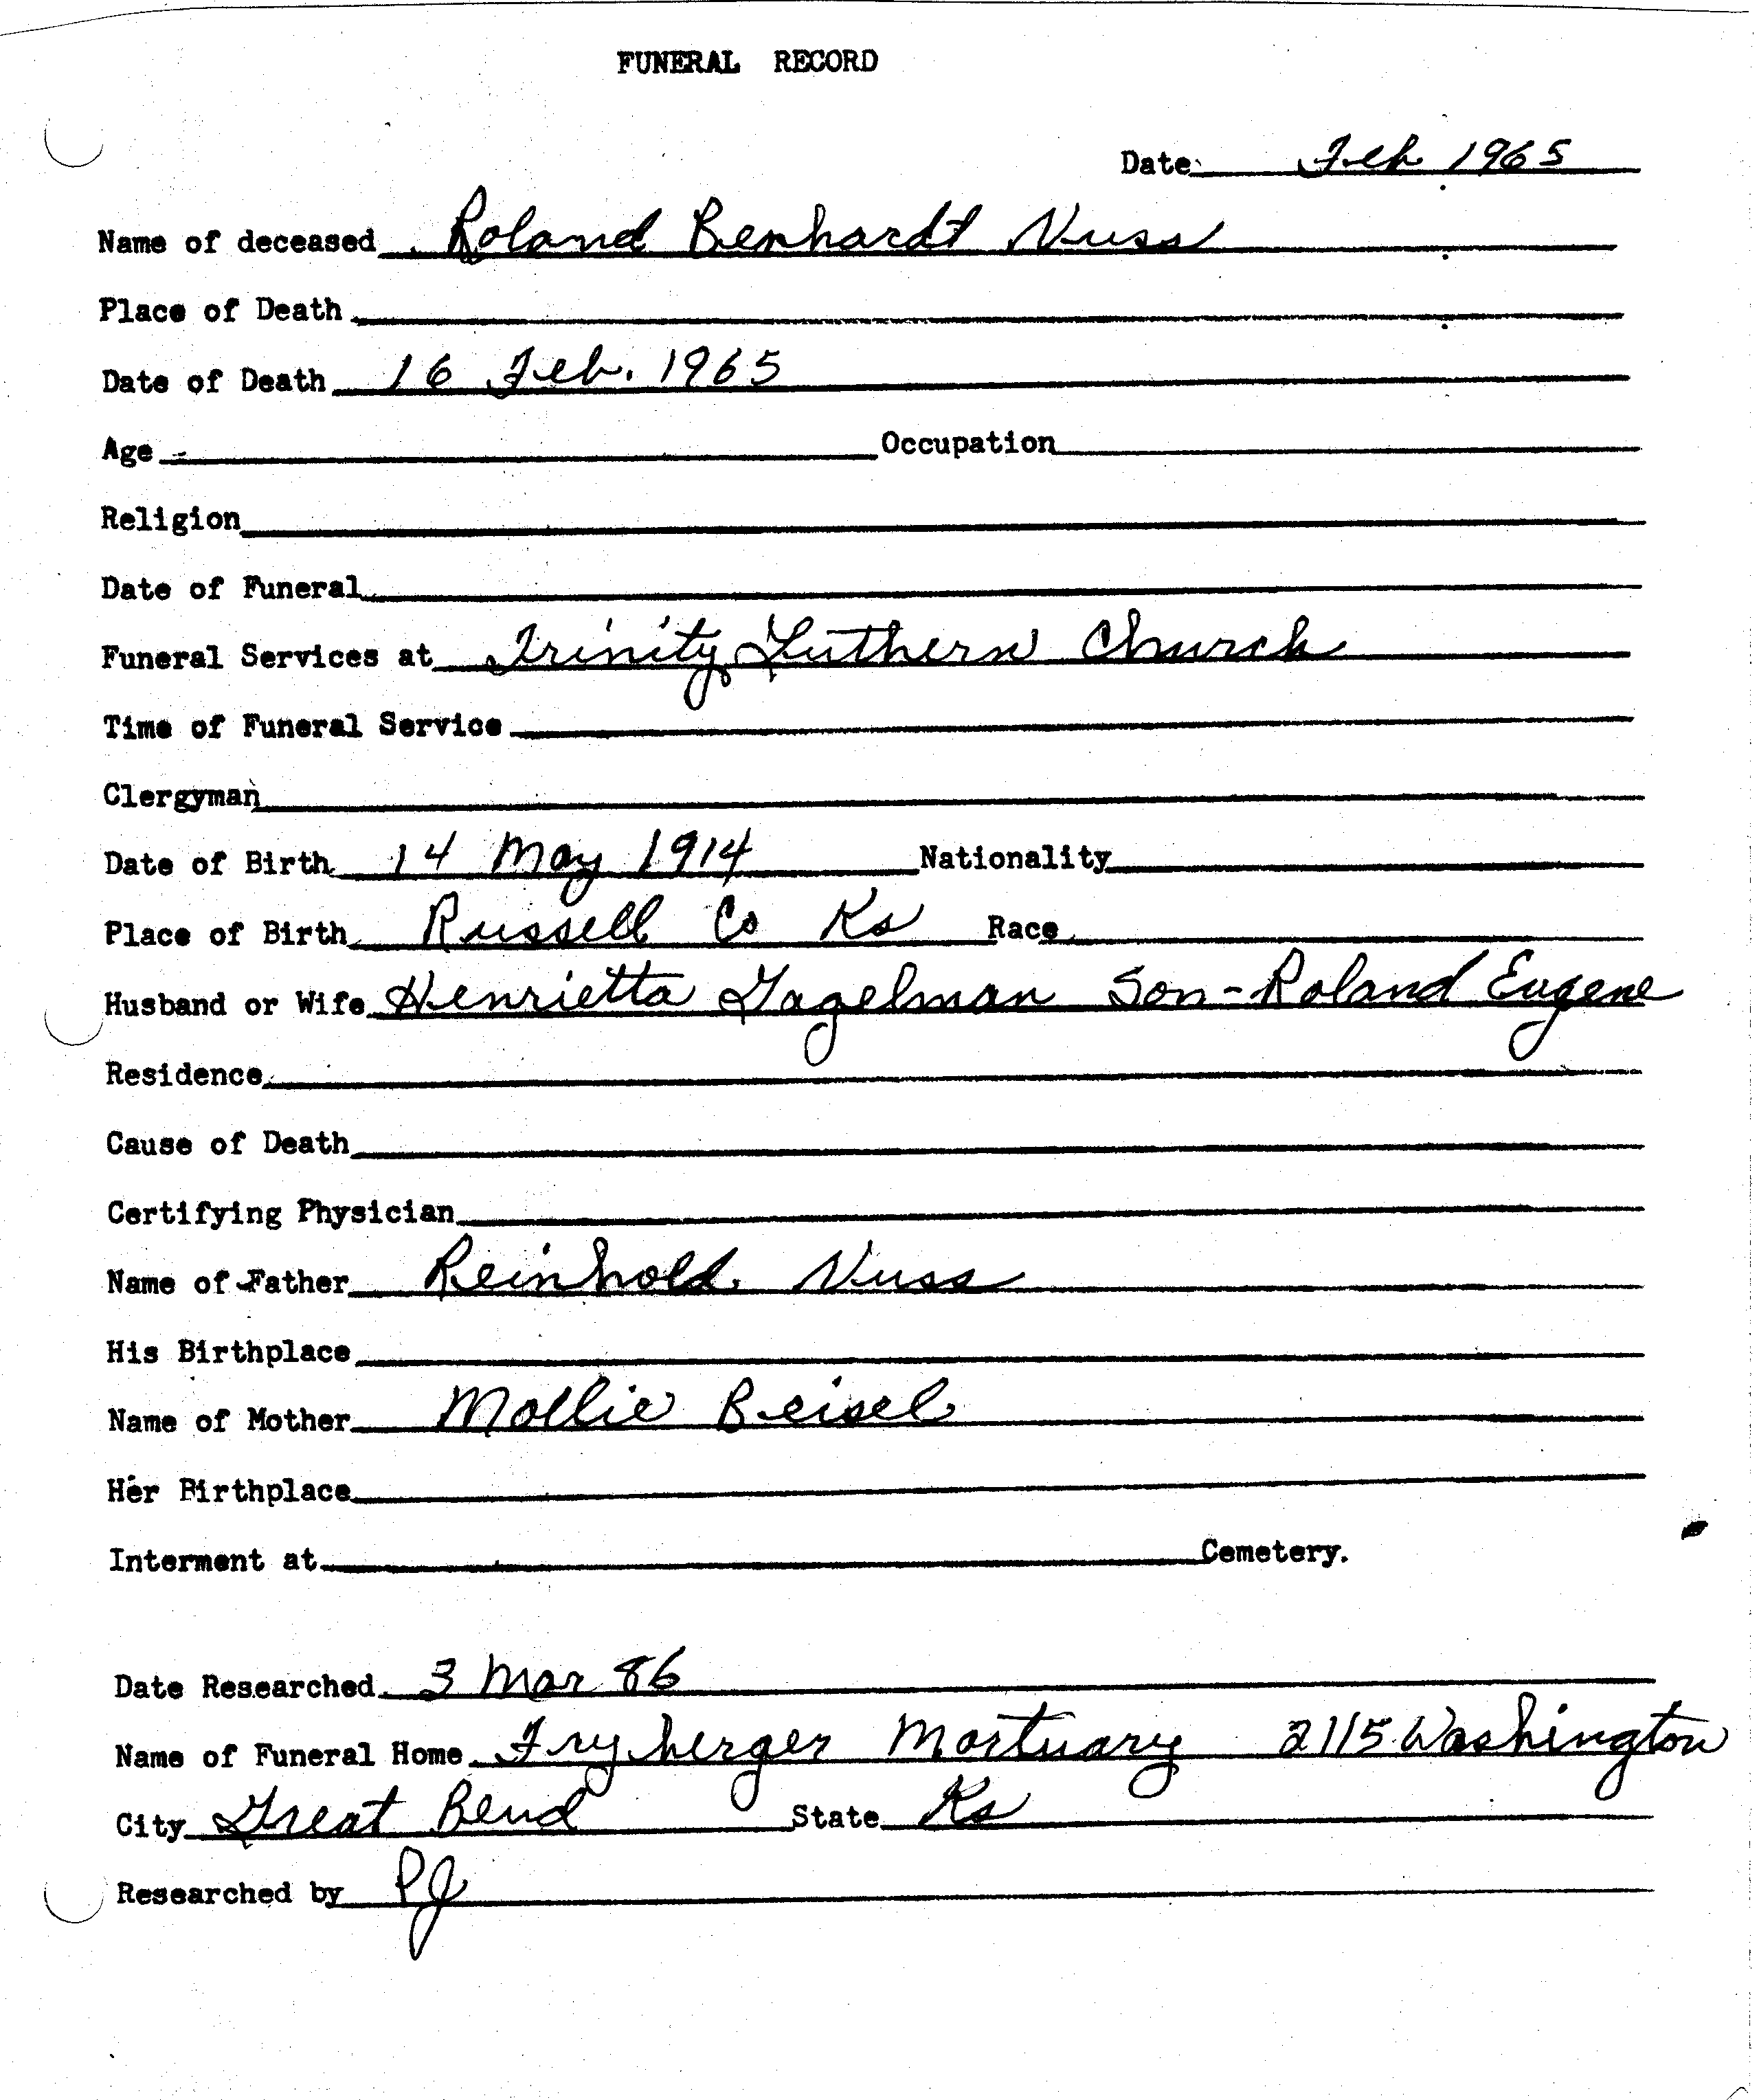 FUNERAL RECORD
Date Feb 1965
Name of deceased Roland Benhardt Nuss
Place of Death
Date of Death 16 Feb. 1965
Age - Occupation
Religion
Date of Funeral
Funeral Services at Trinity Luthern Church
Time of Funeral Service
Clergyman
Date of Birth 14 May 1914 Nationality
Place of Birth Russell Co Ks Race
Husband or Wife Henrietta Gagelman Son-Roland Eugene
Residence
Cause of Death
Certifying Physician
Name of Father Reinhold Nuss
His Birthplace
Name of Mother Mollie Beisel
Her Birthplace
Interment at Cemetery.
Date Researched 3 Mar 86
Name of Funeral Home Fryberger Mortuary 2115 Washington
City Great Bend State Ks
Researched by PJ